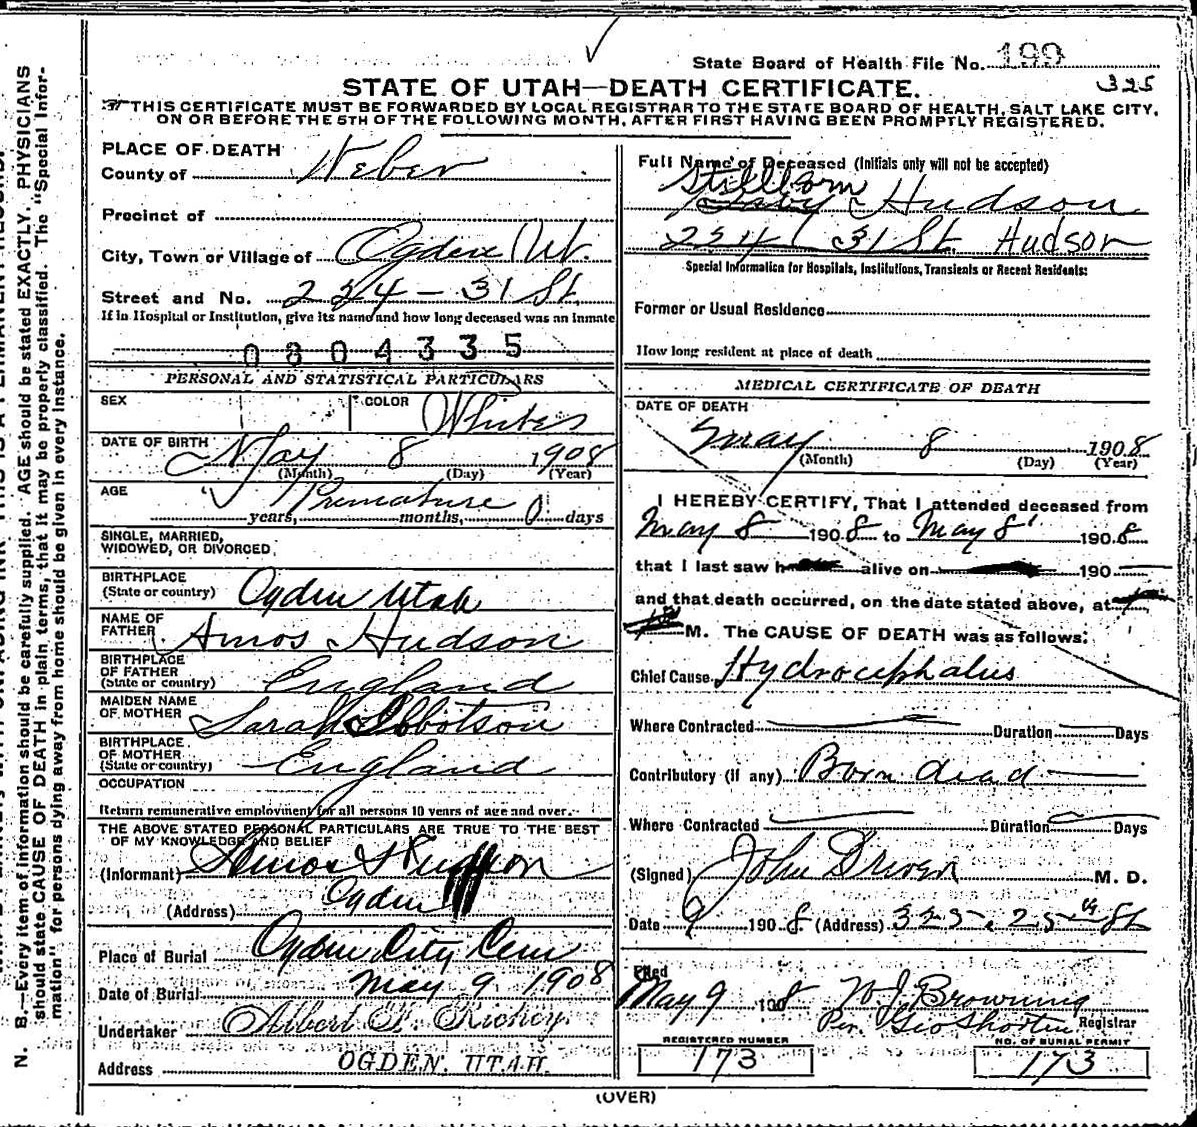 State Board of Health File No. 199
325
STATE OF UTAH—DEATH CERTIFICATE.
THIS CERTIFICATE MUST BE FORWARDED BY LOCAL REGISTRAR TO THE STATE BOARD OF HEALTH, SALT LAKE CITY,
ON OR BEFORE THE 5TH OF THE FOLLOWING MONTH, AFTER FIRST HAVING BEEN PROMPTLY REGISTERED.
PLACE OF DEATH
County of Weber
Precinct of
City, Town or Village of Ogden Ut.
Street and No. 224 - 31 St.
If in Hospital or Institution, give its name and how long deceased was an inmate
0804335
PERSONAL AND STATISTICAL PARTICULARS
SEX
COLOR White
DATE OF BIRTH May 8 1908
(Month) (Day) (Year)
AGE Premature 0
years, months, days
SINGLE, MARRIED,
WIDOWED, OR DIVORCED
BIRTHPLACE
(State or country) Ogden Utah
NAME OF
FATHER Amos Hudson
BIRTHPLACE
OF FATHER
(State or country) England
MAIDEN NAME
OF MOTHER Sarah Ibbotson
BIRTHPLACE
OF MOTHER
(State or country) England
OCCUPATION
Return remunerative employment for all persons 10 years of age and over.
THE ABOVE STATED PERSONAL PARTICULARS ARE TRUE TO THE BEST
OF MY KNOWLEDGE AND BELIEF
(Informant) Amos Hudson
(Address) Ogden
Place of Burial Ogden City Cem
Date of Burial May 9 1908
Undertaker Albert F. Richey
Address OGDEN, UTAH.
Full Name of Deceased (Initials only will not be accepted)
Stillborn
Baby Hudson
224 31 St. Hudson
Special Information for Hospitals, Institutions, Transients or Recent Residents:
Former or Usual Residence
How long resident at place of death
MEDICAL CERTIFICATE OF DEATH
DATE OF DEATH
May 8 1908
(Month) (Day) (Year)
I HEREBY CERTIFY, That I attended deceased from
May 8 1908 to May 8 1908
that I last saw h alive on 190
and that death occurred, on the date stated above, at
M. The CAUSE OF DEATH was as follows:
Chief Cause Hydrocephalus
Where Contracted Duration Days
Contributory (if any) Born dead
Where Contracted Duration Days
(Signed) John Driver M. D.
Date 9 1908. (Address) 325. 25th St
Filed
May 9 1908 W. J. Browning
Per. Geo Shorten Registrar
REGISTERED NUMBER
173
NO. OF BURIAL PERMIT
173
(OVER)
N. B.—Every item of information should be carefully supplied. AGE should be stated EXACTLY. PHYSICIANS
should state CAUSE OF DEATH in plain terms, that it may be properly classified. The "Special Infor-
mation" for persons dying away from home should be given in every instance.